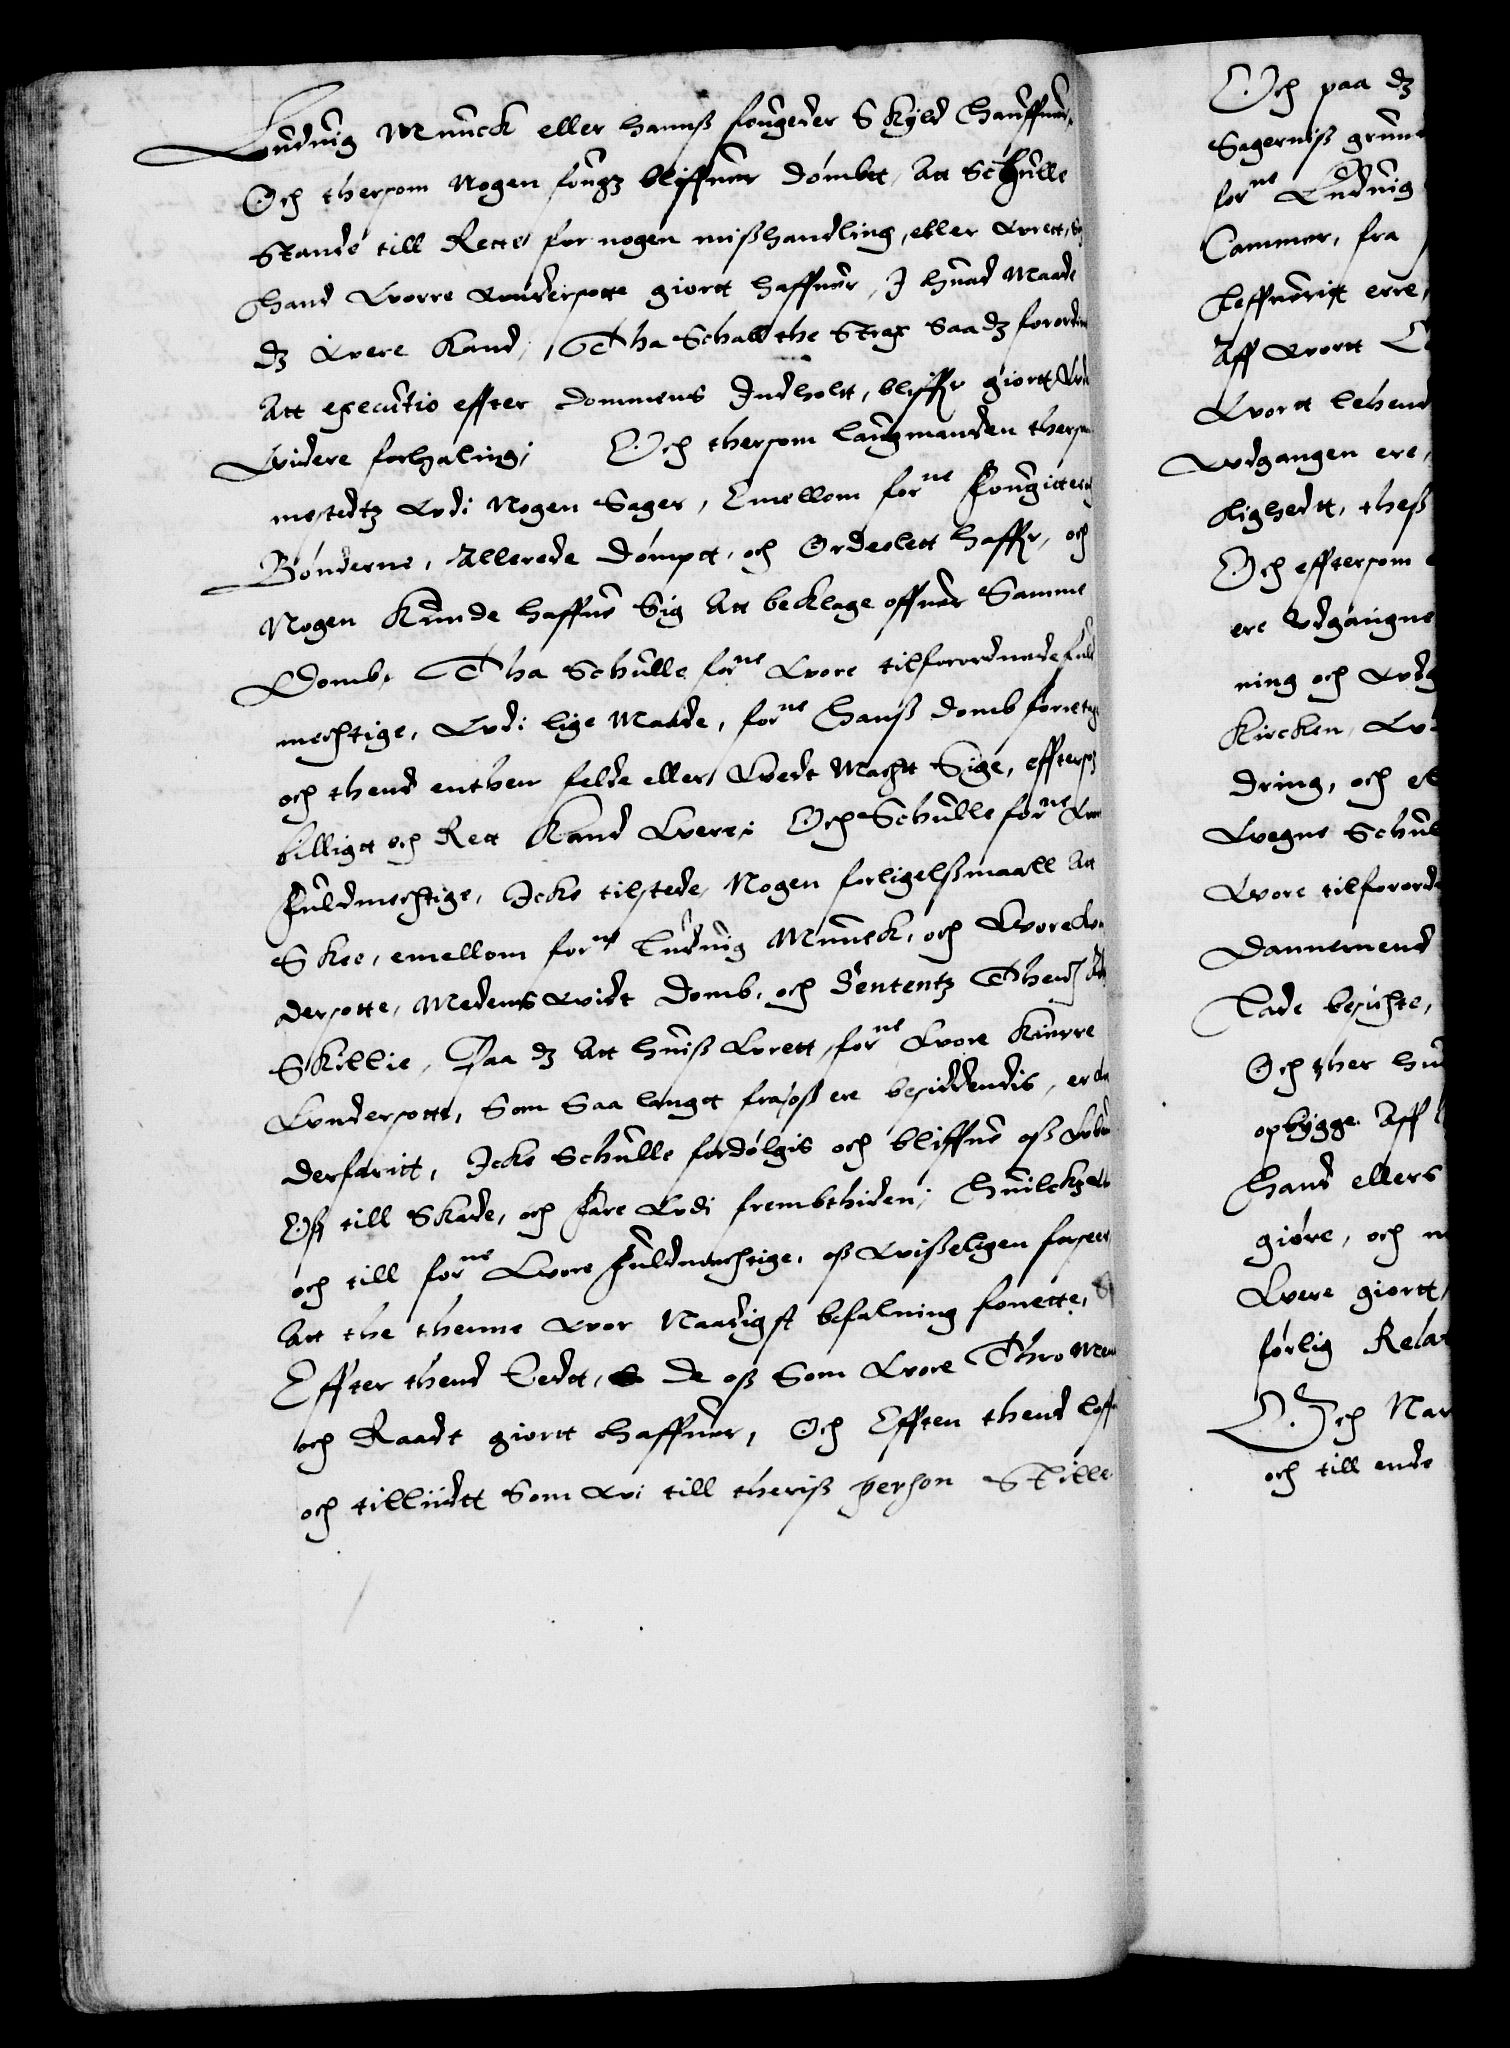 Luduig Munck eller hannß fougeder Skyld hauffuer,
Och thersom Nogen fougz bliffuer dömbtt, Att Schulle
Stande till Rette for nogen mißhandling, eller Wrett,
hand Worre Wndersotte giortt haffuer, J huad Maade
dz Were Kand, Tha Schall the Strax Saa dz forordin
Att executio effter dommens Jndholtt, bliffr giortt Vden
Widere forhaling; Och thersom laugmanden thersam
mestedtz Vdi Nogen Sager, Emellom forne Fougitter och
Bönderne, Allerede dömptt, och Ordeelett haffr, och
Nogen Kunde haffue Sig Att beklage offuer Samme
Domb, Tha Schulle forne Wore tilforordnede fuld
mechtige, Vdi lige Maade, forne Hanß domb foretage
och thend enthen felde eller Wedt Macht Sige, eftersom
billigtt och Rett Kand Were; Och Schulle forne Wore
Fuldmechtige, Jcke tilstede, Nogen forligelßmaall Att
Skee, emellom forne Ludwig Munck, och Wore Wn
dersotte, Medens Widt Domb, och Sententz Thend Att
Skillie, Paa dz Att huiß Wrett, forne Wore Kierre
Wndersotte, Som Saa langtt fra oß ere besiddendis, er
derfaritt, Jcke Schulle fordölgis och bliffue oß
Oß till Skade, och Fare Vdi frembthiden; Huilckett
och till forne Wore Fuldmechtige, oß Wißeligen forseer
Att the thenne Wor Naadigst befalning
Effter thend Eedt, de oß Som Wore Thro Mend
och Raadt giortt haffuer, Och Efften thend
och tilliidtt Som Wi till theriß person Stille
Och paa dz
Sagerniß grund
forne Ludwig
Cammer, fra
leffuerit erre,
Aff Wortt
Wortt lehend
Vdgangen ere,
lighedtt, theß
Och efftersom
ere Vdgangne
ning och Vdg
Kircken,
dring, och
Wegne Schul
Wore tilforord
Dannemend
Lade besichte,
Och ther
opbygge Aff
Hand ellers
giöre, och
Were giortt,
förlig Relat
Och Nar
och till ende